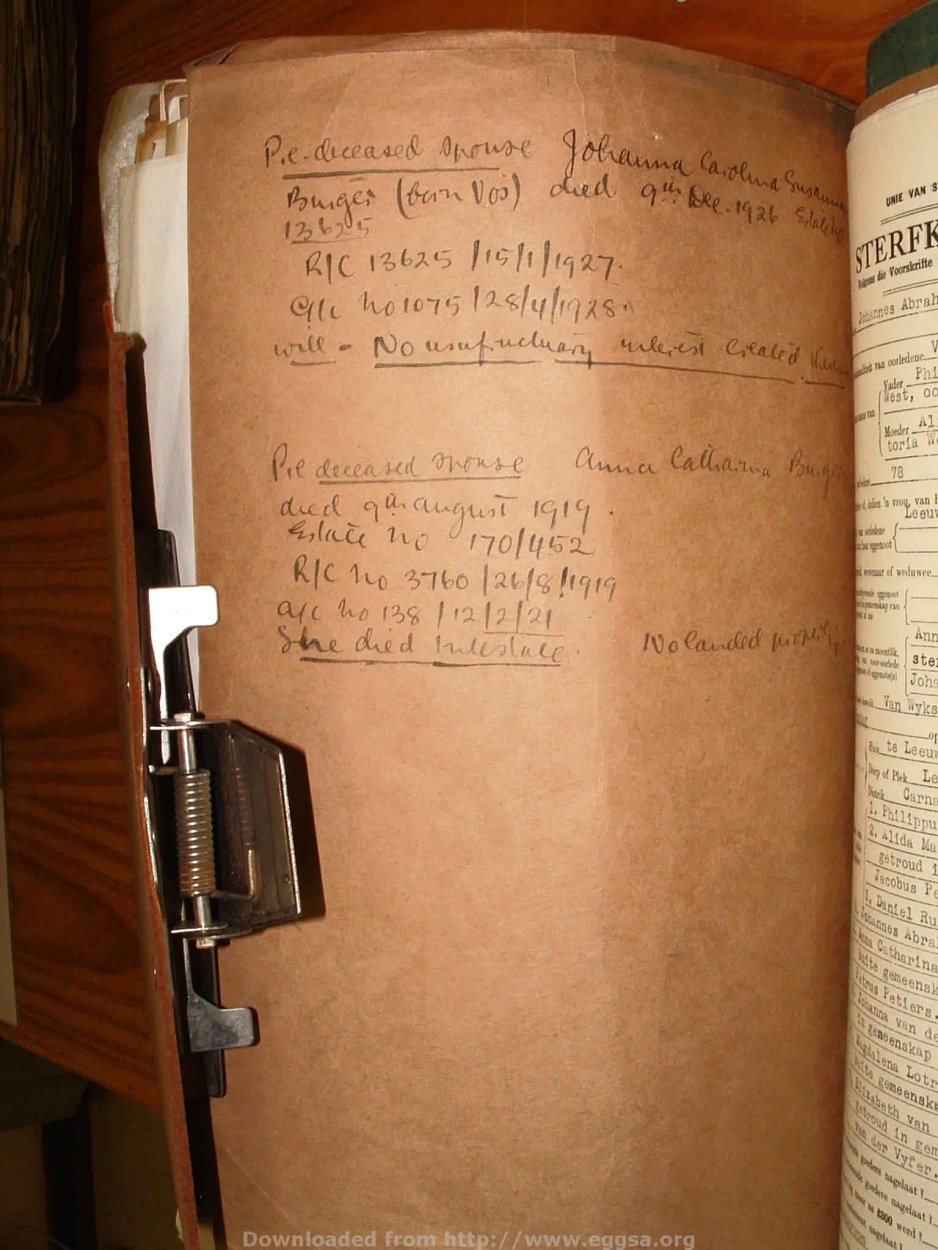 Pre-deceased spouse Johanna Carolina Susanna
Burger (born Vos) died 9th Dec. 1926 Estate No
13625
R/C 13625 /15/1/1927.
a/c No 1075 /28/4/1928
will - No usufructuary interest created
Pre deceased spouse Anna Catharina Burger
died 9th august 1919.
Estate No 170/452
R/C No 3760 /26/8/1919
a/c No 138 /12/2/21
She died Intestate. No landed property
UNIE VAN S
STERFK
Volgens die Voorskrifte
Johannes Abrah
van oorledene V
Vader Phi
West, oo
Moeder Al
toria W
78
of, indien 'n vrou, van h
Leeuw
wewenaar of weduwee
Ann
ster
Joha
Van Wyks
op
Huis te Leeuw
Dorp of Plek Le
Distrik Carna
1. Philippu
2. Alida Ma
getroud i
Jacobus Pe
Daniel Ru
Johannes Abra
Anna Catharina
Buite gemeensk
Petrus Petiers.
Johanna van de
in gemeenskap
Magdalena Lotr
Buite gemeenska
Elizabeth van
getroud in gem
van der Vyfer.
goedere nagelaat?
goedere nagelaat?
meer as £300 werd?
nagelaat?
Downloaded from http://www.eggsa.org